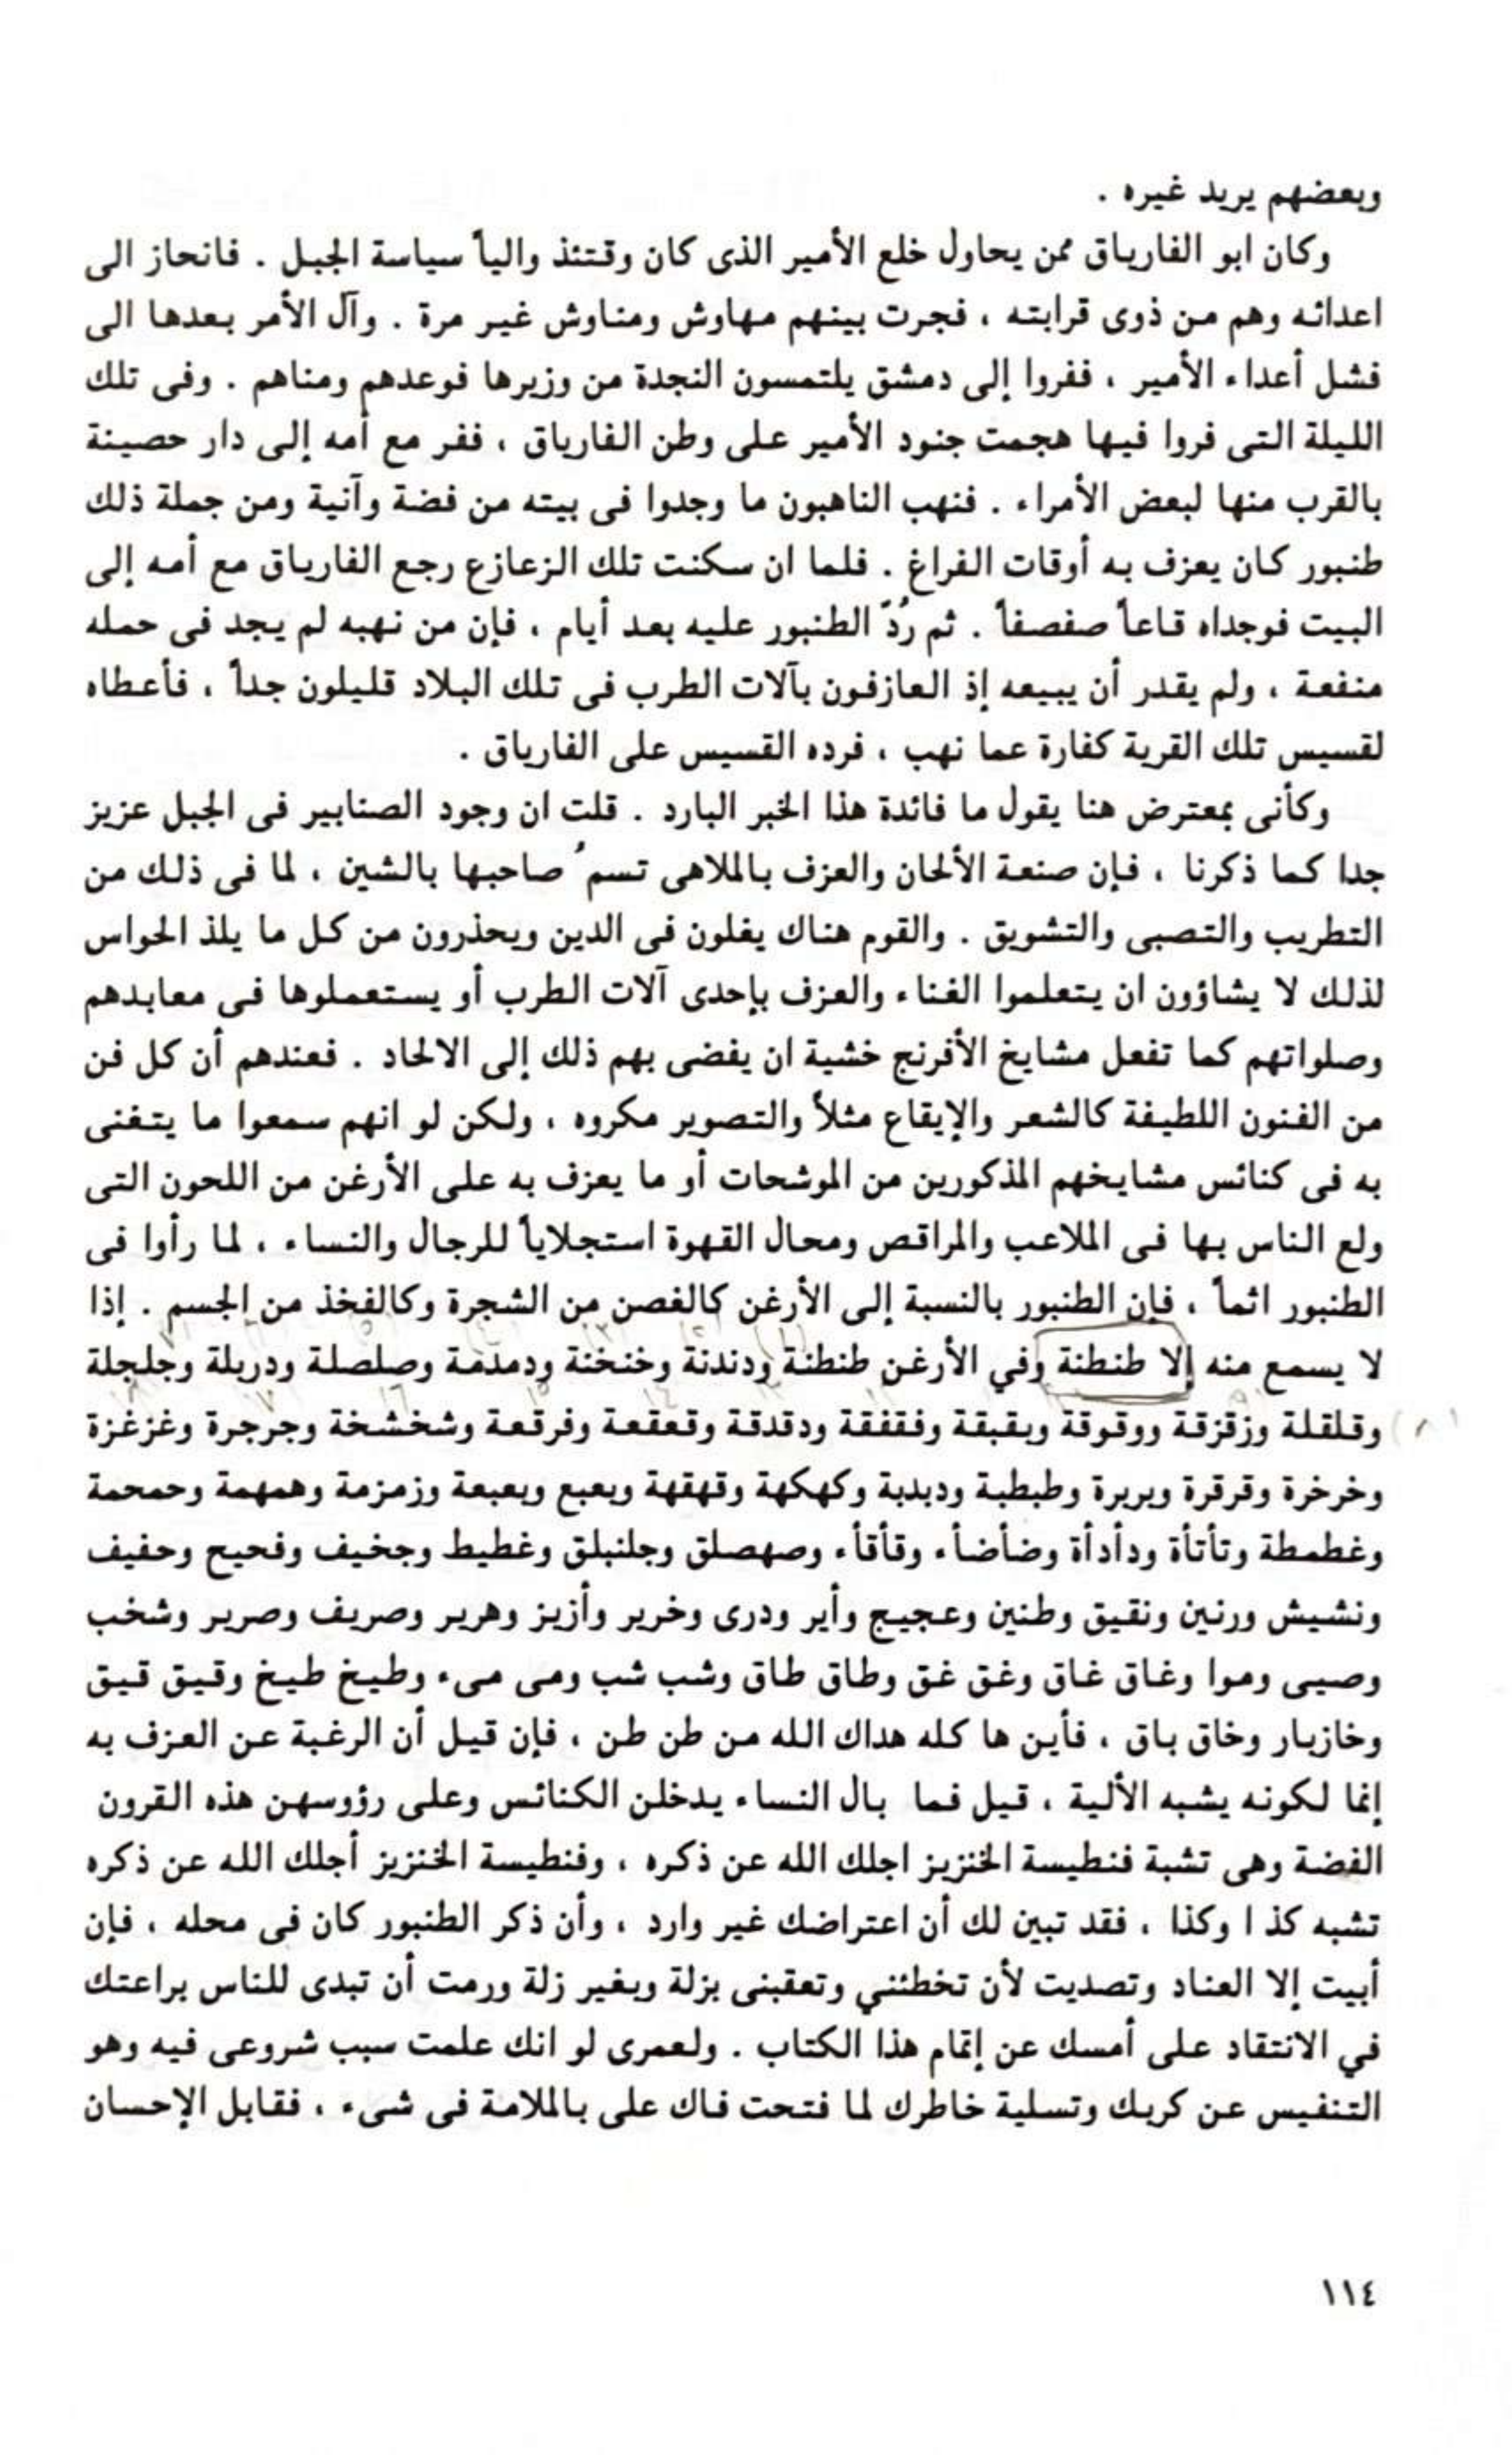 وبعضهم يريد غيره .
وكان ابو الفارياق ممن يحاول خلع الأمير الذى كان وقتئذ والياً سياسة الجبل . فانحاز الى
اعدائه وهم من ذوى قرابته ، فجرت بينهم مهاوش ومناوش غير مرة . وآل الأمر بعدها الى
فشل أعداء الأمير ، ففروا إلى دمشق يلتمسون النجدة من وزيرها فوعدهم ومناهم . وفى تلك
الليلة التى فروا فيها هجمت جنود الأمير على وطن الفارياق ، ففر مع أمه إلى دار حصينة
بالقرب منها لبعض الأمراء . فنهب الناهبون ما وجدوا فى بيته من فضة وآنية ومن جملة ذلك
طنبور كان يعزف به أوقات الفراغ . فلما ان سكنت تلك الزعازع رجع الفارياق مع أمه إلى
البيت فوجداه قاعاً صفصفاً . ثم رُدّ الطنبور عليه بعد أيام ، فإن من نهبه لم يجد فى حمله
منفعة ، ولم يقدر أن يبيعه إذ العازفون بآلات الطرب فى تلك البلاد قليلون جداً ، فأعطاه
لقسيس تلك القرية كفارة عما نهب ، فرده القسيس على الفارياق .
وكأنى بمعترض هنا يقول ما فائدة هذا الخبر البارد . قلت ان وجود الصنابير فى الجبل عزيز
جدا كما ذكرنا ، فإن صنعة الألحان والعزف بالملاهى تسمُ صاحبها بالشين ، لما فى ذلك من
التطريب والتصبى والتشويق . والقوم هناك يغلون فى الدين ويحذرون من كل ما يلذ الحواس
لذلك لا يشاؤون ان يتعلموا الغناء والعزف بإحدى آلات الطرب أو يستعملوها فى معابدهم
وصلواتهم كما تفعل مشايخ الأفرنج خشية ان يفضى بهم ذلك إلى الالحاد . فعندهم أن كل فن
من الفنون اللطيفة كالشعر والإيقاع مثلاً والتصوير مكروه ، ولكن لو انهم سمعوا ما يتغنى
به فى كنائس مشايخهم المذكورين من الموشحات أو ما يعزف به على الأرغن من اللحون التى
ولع الناس بها فى الملاعب والمراقص ومحال القهوة استجلاياً للرجال والنساء ، لما رأوا فى
الطنبور اثماً ، فإن الطنبور بالنسبة إلى الأرغن كالغصن من الشجرة وكالفخذ من الجسم . إذا
لا يسمع منه إلا طنطنة وفي الأرغن طنطنة ودندنة وخنخنة ودمدمة وصلصلة ودربلة وجلجلة
وقلقلة وزقزقة ووقوقة وبقبقة وفقفقة ودقدقة وقعقعة وفرقعة وشخشخة وجرجرة وغزغزة
وخرخرة وقرقرة وبربرة وطبطبة ودبدبة وكهكهة وقهقهة وبعبع وبعبعة وزمزمة وهمهمة وحمحمة
وغطمطة وتأتأة ودأدأة وضأضأء وقأقأء وصهصلق وجلنبلق وغطيط وجخيف وفحيح وحفيف
ونشيش ورنين ونقيق وطنين وعجيج وأير ودرى وخرير وأزيز وهرير وصريف وصرير وشخب
وصيى وموا وغاق غاق وغق غق وطاق طاق وشب شب ومى مىء وطيخ طيخ وقيق قيق
وخازبار وخاق باق ، فأين ها كله هداك الله من طن طن ، فإن قيل أن الرغبة عن العزف به
إنما لكونه يشبه الألية ، قيل فما بال النساء يدخلن الكنائس وعلى رؤوسهن هذه القرون
الفضة وهى تشبة فنطيسة الخنزيز اجلك الله عن ذكره ، وفنطيسة الخنزيز أجلك الله عن ذكره
تشبه كذ ا وكذا ، فقد تبين لك أن اعتراضك غير وارد ، وأن ذكر الطنبور كان فى محله ، فإن
أبيت إلا العناد وتصديت لأن تخطئني وتعقبنى بزلة وبغير زلة ورمت أن تبدى للناس براعتك
في الانتقاد على أمسك عن إتمام هذا الكتاب . ولعمرى لو انك علمت سبب شروعى فيه وهو
التنفيس عن كربك وتسلية خاطرك لما فتحت فاك على بالملامة فى شىء ، فقابل الإحسان
١١٤